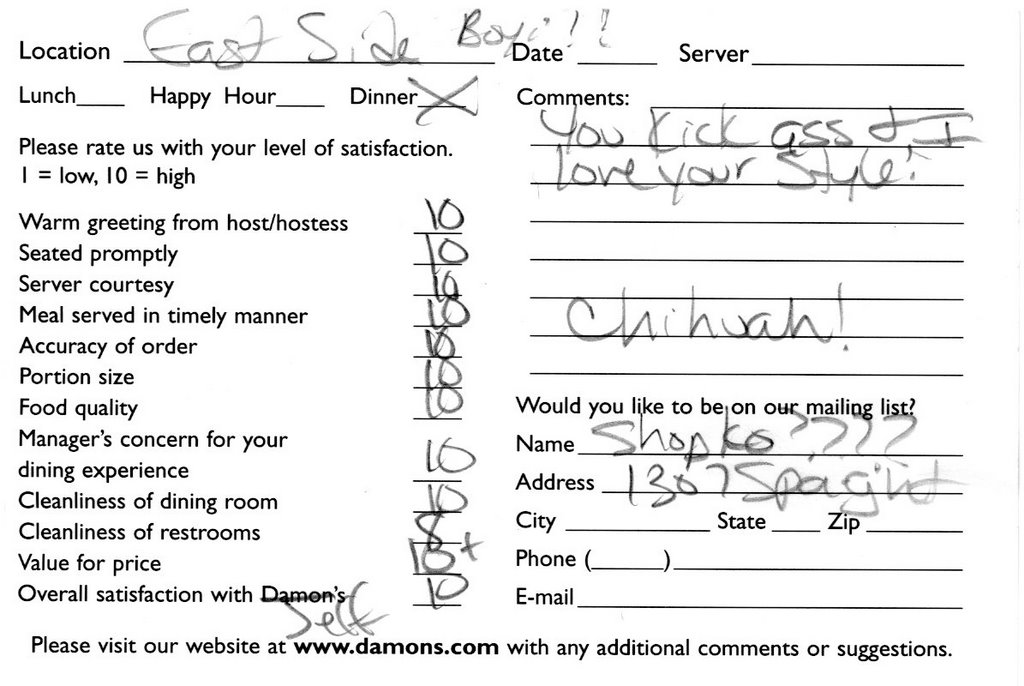 Location East Side Boyi!!
Date Server
Lunch Happy Hour Dinner X
Please rate us with your level of satisfaction.
1 = low, 10 = high
Warm greeting from host/hostess 10
Seated promptly 10
Server courtesy 10
Meal served in timely manner 10
Accuracy of order 10
Portion size 10
Food quality 10
Manager's concern for your
dining experience 10
Cleanliness of dining room 10
Cleanliness of restrooms 8
Value for price 10+
Overall satisfaction with Damon's 10
Self
Comments:
You kick ass & I
love your style!
Chihuah!
Would you like to be on our mailing list?
Name Shopko????
Address 1307
City State Zip
Phone ( )
E-mail
Please visit our website at www.damons.com with any additional comments or suggestions.